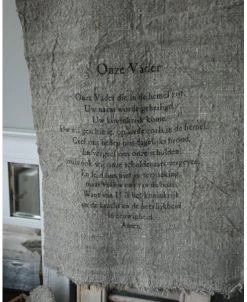 Onze Vader
Onze Vader die in de hemel zijt,
Uw naam worde geheiligd,
Uw koninkrijk kome,
Uw wil geschiede, op aarde zoals in de hemel.
Geef ons heden ons dagelijks brood,
En vergeef ons onze schulden,
zoals ook wij onze schuldenaars vergeven.
En leid ons niet in verzoeking,
maar verlos ons van de boze.
Want van U is het koninkrijk
en de kracht en de heerlijkheid
in eeuwigheid.
Amen.